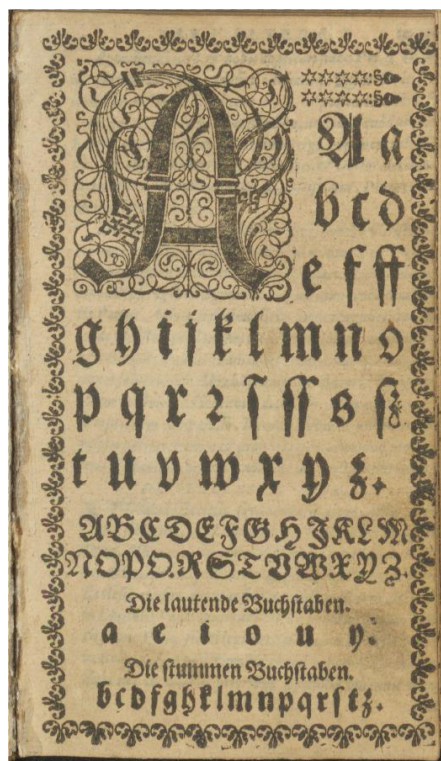 A
A a
b c d
e f ff
g h i j k l m n o
p q r ꝛ ſ ſſ s ß
t u v w x y z.
A B C D E F G H J K L M
N O P Q R S T V W X Y Z.
Die lautende Buchſtaben.
a e i o u y.
Die ſtummen Buchſtaben.
b c d f g h k l m n p q r ſ t z.